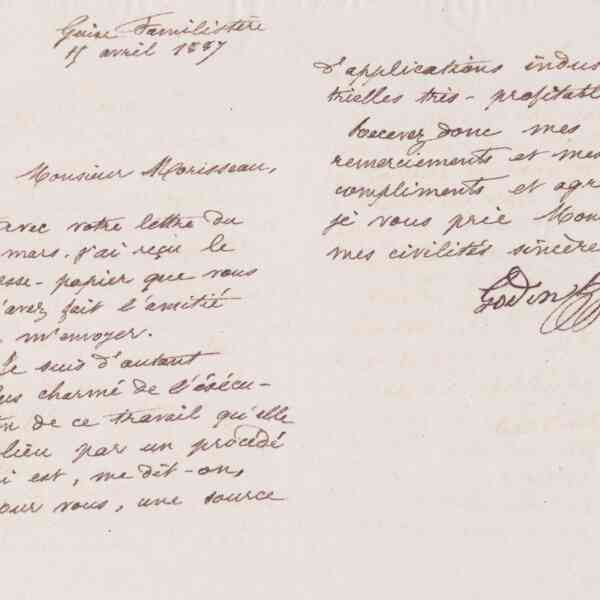 Guise Familistère
15 avril 1887
Monsieur Morisseau,
avec votre lettre du
mars, j'ai reçu le
esse-papier que vous
'avez fait l'amitié
m'envoyer.
Je suis d'autant
us charmé de l'exécu-
on de ce travail qu'elle
lieu par un procédé
i est, me dit-on,
pour vous, une source
d'applications indus
trielles très-profitabl
Recevez donc mes
remerciements et mes
compliments et agr
je vous prie Mon
mes civilités sincère
Godin